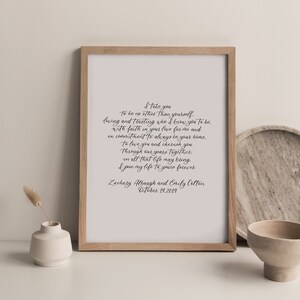 I take you
to be no other than yourself,
loving and trusting who I know you to be
with faith in your love for me and
in commitment to always be your home.
To love you and cherish you
through our years together
in all that life may bring,
I join my life to yours forever.
Zachary Albaugh and Emily Collin
October 19, 2019